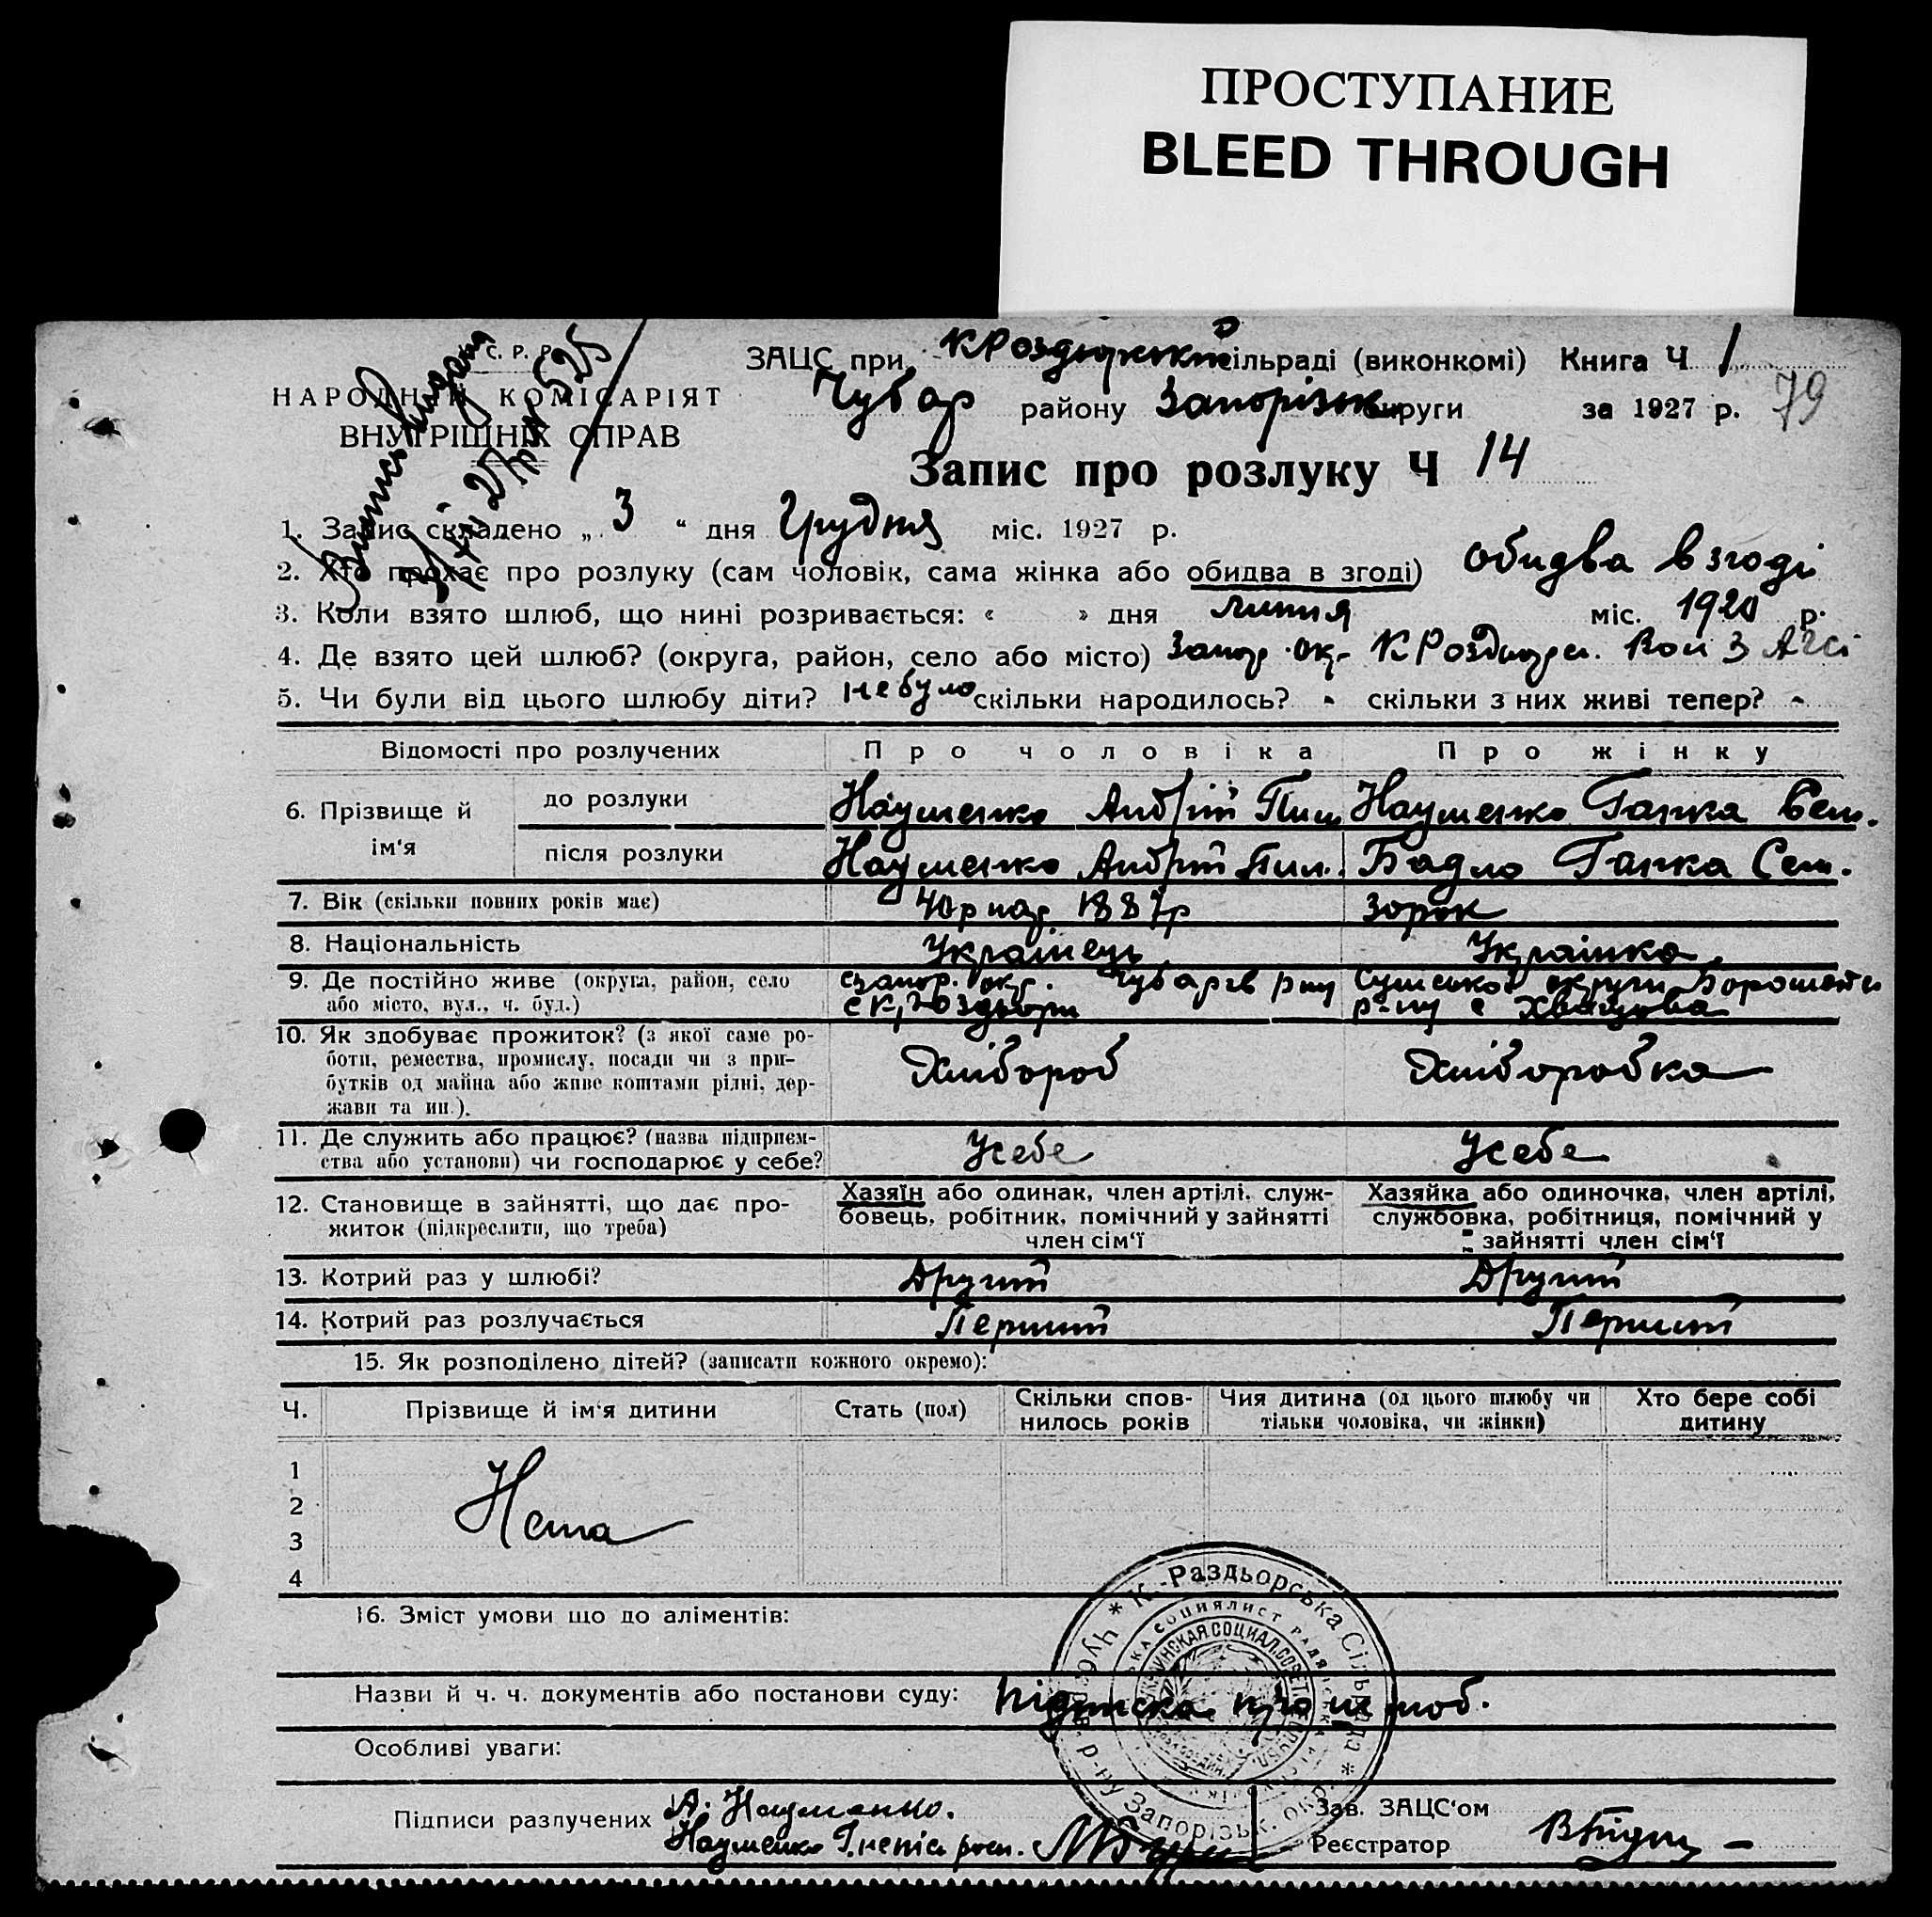 ПРОСТУПАНИЕ
BLEED THROUGH
С. Р. Р.
НАРОДНИЙ КОМІСАРІЯТ
ВНУТРІШНІХ СПРАВ
ЗАЦС при сільраді (виконкомі) Книга Ч 1
Чубар району Запорізьк округи за 1927 р. 79
Запис про розлуку Ч 14
1. Запис складено „ 3 “ дня Грудня міс. 1927 р.
2. Хто прохає про розлуку (сам чоловік, сама жінка або обидва в згоді) Обидва в згоді
3. Коли взято шлюб, що нині розривається: « » дня липня міс. 1920 р.
4. Де взято цей шлюб? (округа, район, село або місто) Запор. ок.
5. Чи були від цього шлюбу діти? не було скільки народилось? - скільки з них живі тепер? -
Відомості про розлучених Про чоловіка Про жінку
6. Прізвище й ім‘я
до розлуки Науменко Андрій Пил. Науменко Гапка Сем.
після розлуки Науменко Андрій Пил. Бадло Гапка Сем.
7. Вік (скільки повних років має) 40 р нар 1887 р 30 рок
8. Національність Українець Українка
9. Де постійно живе (округа, район, село або місто, вул., ч. буд.) Запор. окр. Чубарів р-ну Сумської округи
р-ну с
10. Як здобуває прожиток? (з якої саме роботи, ремества, промислу, посади чи з прибутків од майна або живе коштами рідні, держави та ин.). Хлібороб Хліборобка
11. Де служить або працює? (назва підприемства або установи) чи господарює у себе? Усебе Усебе
12. Становище в зайнятті, що дає прожиток (підкреслити, що треба)
Хазяїн або одинак, член артілі, службовець, робітник, помічний у зайнятті член сім‘ї
Хазяйка або одиночка, член артілі, службовка, робітниця, помічний у зайнятті член сім‘ї
13. Котрий раз у шлюбі? Другий Другий
14. Котрий раз розлучається Перший Перший
15. Як розподілено дітей? (записати кожного окремо):
Ч. Прізвище й ім‘я дитини Стать (пол) Скільки сповнилось років Чия дитина (од цього шлюбу чи тільки чоловіка, чи жінки) Хто бере собі дитину
1
2
3
4
Нема
16. Зміст умови що до аліментів:
Назви й ч. ч. документів або постанови суду: Підписка про шлюб.
Особливі уваги:
Підписи разлучених А. Науменко.
Науменко
Зав. ЗАЦС‘ом
Реєстратор
* К.-Раздьорська Сільрада * Чубарів. р-ну Запорізьк. окр.